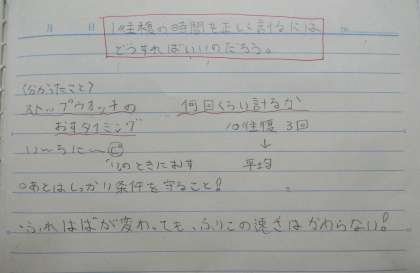 1往復の時間を正しく計るには
どうすればいいのだろう。
(分かったこと)
ストップウォッチの 何回くらい計るか
おすタイミング 10往復 3回
い〜ちに〜 ↓
のときにおす 平均
○あとはしっかり条件を守ること!
・ふれはばが変わっても、ふりこの速さはかわらない!